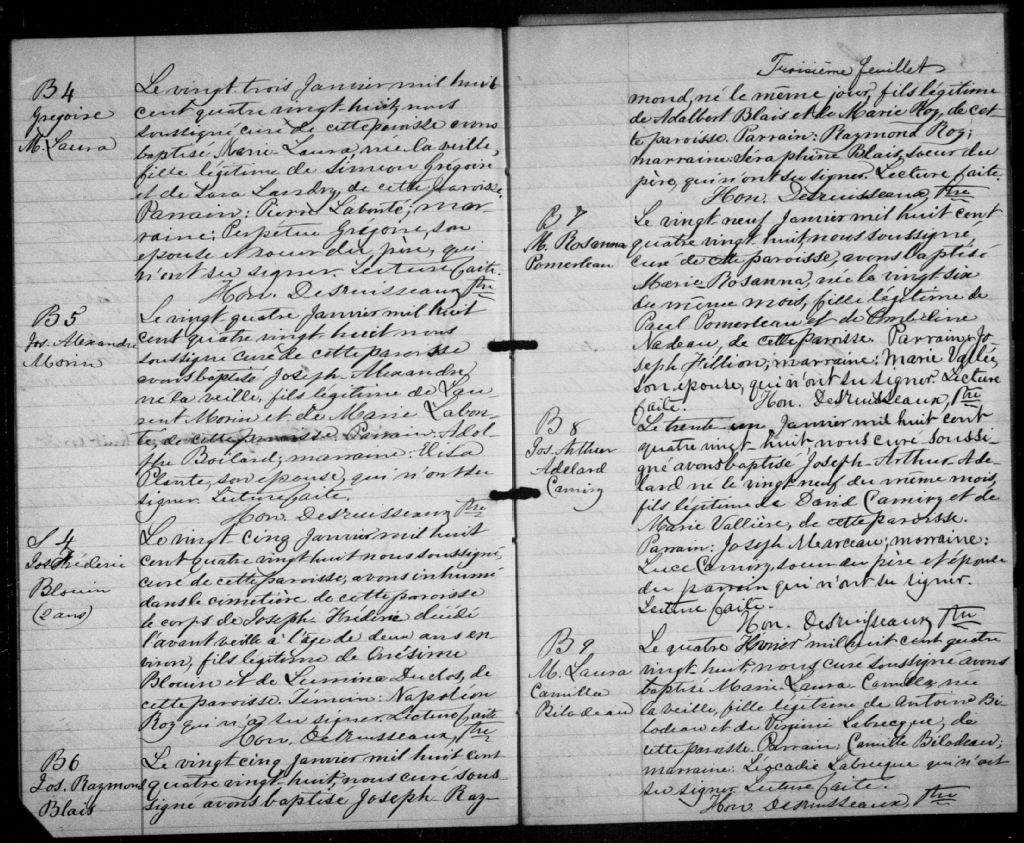 B 4
Grégoire
M. Laura
Le vingt trois Janvier mil huit
cent quatre vingt huit, nous
soussigné curé de cette paroisse avons
baptisé, Marie Laura, née la veille,
fille légitime de Siméon Grégoire
et de Sara Landry, de cette paroisse.
Parrain: Pierre Labonté, mar-
raine: Perpétue Grégoire, son
epouse et sœur du père, qui
n'ont su signer. Lecture faite.
Hon. Desruisseaux, Ptre
B 5
Jos. Alexandre
Morin
Le vingt quatre Janvier mil huit
cent quatre vingt huit nous
soussigné curé de cette paroisse
avons baptisé Joseph Alexandre,
né la veille, fils légitime de Lau-
rent Morin et de Marie Labon-
té, de cette paroisse. Parrain: Adol-
phe Boilard; marraine: Elisa
Plante, son épouse, qui n'ont su
signer. Lecture faite.
Hon. Desruisseaux, Ptre
S 4
Jos Fréderic
Blouin
(2 ans)
Le vingt cinq Janvier mil huit
cent quatre vingt huit nous soussigné,
curé de cette paroisse, avons inhumé
dans le cimetière de cette paroisse
le corps de Joseph Fréderic décédé
l'avant veille à l'âge de deux ans en-
viron, fils légitime de Onésime
Blouin et de Lumina Duclos, de
cette paroisse. Témoin: Napoléon
Roy qui n'a su signer. Lecture faite
Hon. Desruisseaux, Ptre
B 6
Jos. Raymond
Blais
Le vingt cinq Janvier mil huit cent
quatre vingt huit, nous curé sous-
signé avons baptisé Joseph Ray-
Troisième feuillet
mond, né le même jour, fils légitime
de Adalbert Blais et de Marie Roy, de cet-
te paroisse. Parrain: Raymond Roy;
marraine: Séraphine Blais, sœur du
père, qui n'ont su signer. Lecture faite.
Hon. Desruisseaux, Ptre
B 7
M. Rosanna
Pomerleau
Le vingt neuf Janvier mil huit cent
quatre vingt huit, nous soussigné,
curé de cette paroisse, avons baptisé
Marie Rosanna, née la vingt six
du même mois, fille légitime de
Paul Pomerleau et de Ombéline
Nadeau, de cette paroisse. Parrain: Jo-
seph Fillion; marraine: Marie Vallée,
son épouse, qui n'ont su signer. Lecture
faite. Hon. Desruisseaux, Ptre
B 8
Jos. Arthur
Adelard
Camiry
Le trente un Janvier mil huit cent
quatre vingt huit, nous curé soussi-
gné avons baptisé Joseph Arthur Ade-
lard né le vingt neuf du même mois,
fils légitime de David Camiry et de
Marie Vallière, de cette paroisse.
Parrain: Joseph Marceau, marraine:
Luce Camiry, sœur du père et épouse
du parrain qui n'ont su signer.
Lecture faite.
Hon. Desruisseaux Ptre
B 9
M. Laura
Camilla
Bilodeau
Le quatre Février mil huit cent quatre
vingt huit, nous curé soussigné avons
baptisé Marie Laura Camilla, née
la veille, fille légitime de Antoine Bi-
lodeau et de Virginie Labrecque, de
cette paroisse. Parrain: Camille Bilodeau;
marraine: Léocadie Labrecque qui n'ont
su signer. Lecture faite.
Hon. Desruisseaux, Ptre